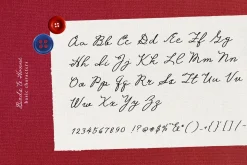 Aa Bb Cc Dd Ee Ff Gg
Hh Ii Jj Kk Ll Mm Nn
Oo Pp Qq Rr Ss Tt Uu Vv
Ww Xx Yy Zz
1234567890